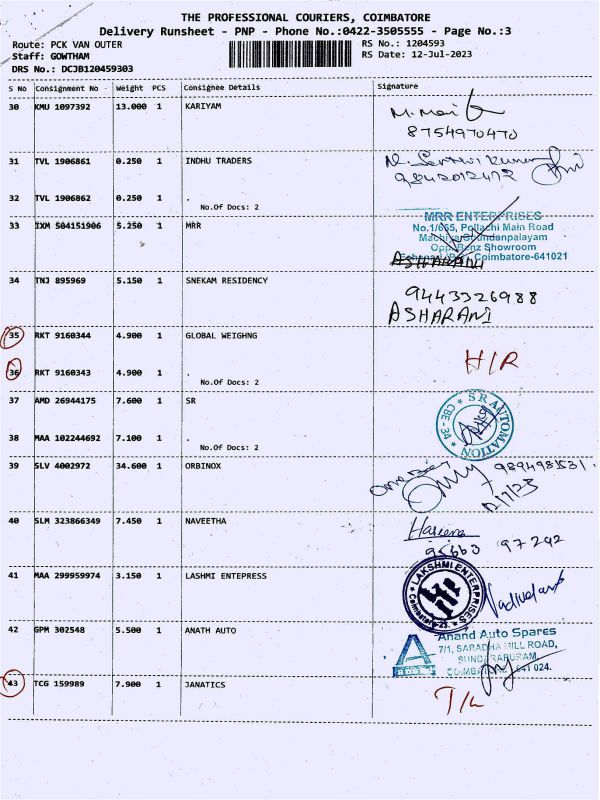 THE PROFESSIONAL COURIERS, COIMBATORE
Delivery Runsheet - PNP - Phone No.:0422-3505555 - Page No.:3
Route: PCK VAN OUTER RS No.: 1204593
Staff: GOWTHAM RS Date: 12-Jul-2023
DRS No.: DCJB120459303
S No Consignment No Weight PCS Consignee Details Signature
30 KMU 1097392 13.000 1 KARIYAM
8754970470
31 TVL 1906861 0.250 1 INDHU TRADERS
9842012472
32 TVL 1906862 0.250 1 .
No.Of Docs: 2
33 IXM 504151906 5.250 1 MRR
MRR ENTERPRISES
No.1/655, Pollachi Main Road
Opp. Benz Showroom
Coimbatore-641021
ASHARANI
34 TNJ 895969 5.150 1 SNEKAM RESIDENCY
9443326988
ASHARANI
35 RKT 9160344 4.900 1 GLOBAL WEIGHNG
H/R
36 RKT 9160343 4.900 1 .
No.Of Docs: 2
37 AMD 26944175 7.600 1 SR
SR AUTOMATION
CBE-34
38 MAA 102244692 7.100 1 .
No.Of Docs: 2
39 SLV 4002972 34.600 1 ORBINOX
12/7/23
40 SLM 323866349 7.450 1 NAVEETHA
Hareera
95663 97242
41 MAA 299959974 3.150 1 LASHMI ENTEPRESS
LAKSHMI ENTERPRISES
Coimbatore-23.
42 GPM 302548 5.500 1 ANATH AUTO
Anand Auto Spares
7/1, SARADHA MILL ROAD,
SUNDARAPURAM,
COIMBATORE - 641 024.
43 TCG 159989 7.900 1 JANATICS
T/L